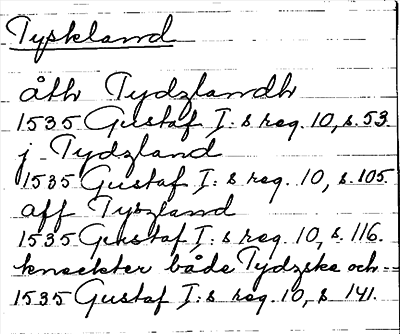 Tyskland
åth Tydzlandh
1535 Gustaf I:s reg. 10, s. 53.
j Tydzland
1535 Gustaf I:s reg. 10, s. 105.
aff Tyszland
1535 Gustaf I:s reg. 10, s. 116.
kneckter både Tydzske och--
1535 Gustaf I:s reg. 10, s 141.